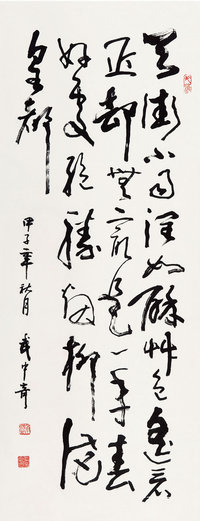 天街小雨潤如酥艸色遥看
近却無最是一年春
好處絶勝烟柳滿
皇都
甲子年秋月 武中奇